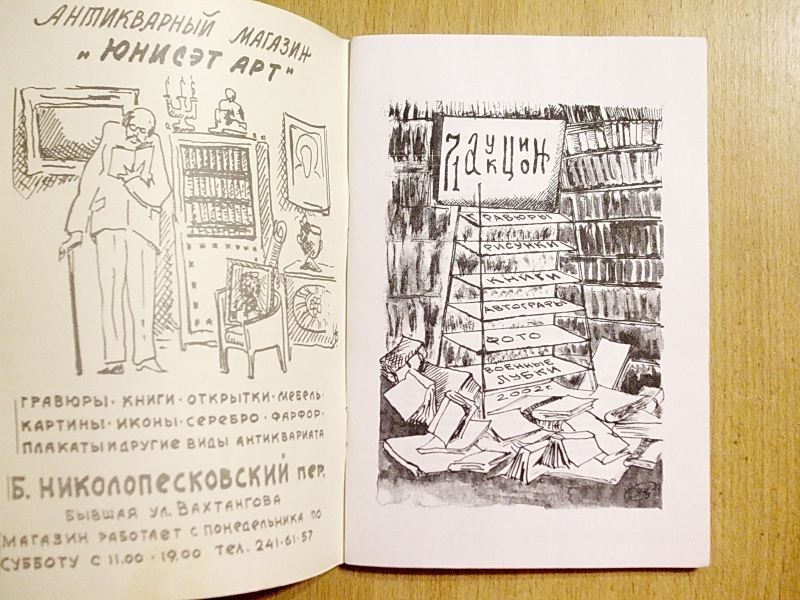 АНТИКВАРНЫЙ МАГАЗИН
„ЮНИСЭТ АРТ"
ГРАВЮРЫ · КНИГИ · ОТКРЫТКИ · МЕБЕЛЬ ·
КАРТИНЫ · ИКОНЫ · СЕРЕБРО · ФАРФОР ·
ПЛАКАТЫ И ДРУГИЕ ВИДЫ АНТИКВАРИАТА
Б. НИКОЛОПЕСКОВСКИЙ ПЕР.
БЫВШАЯ УЛ. ВАХТАНГОВА
МАГАЗИН РАБОТАЕТ С ПОНЕДЕЛЬНИКА ПО
СУББОТУ С 11.00 - 19.00 ТЕЛ. 241-61-57
71 АУКЦИОН
ГРАВЮРЫ
РИСУНКИ
КНИГИ
АВТОГРАФЫ
ФОТО
ВОЕННЫЕ
ЛУБКИ
2002 г.